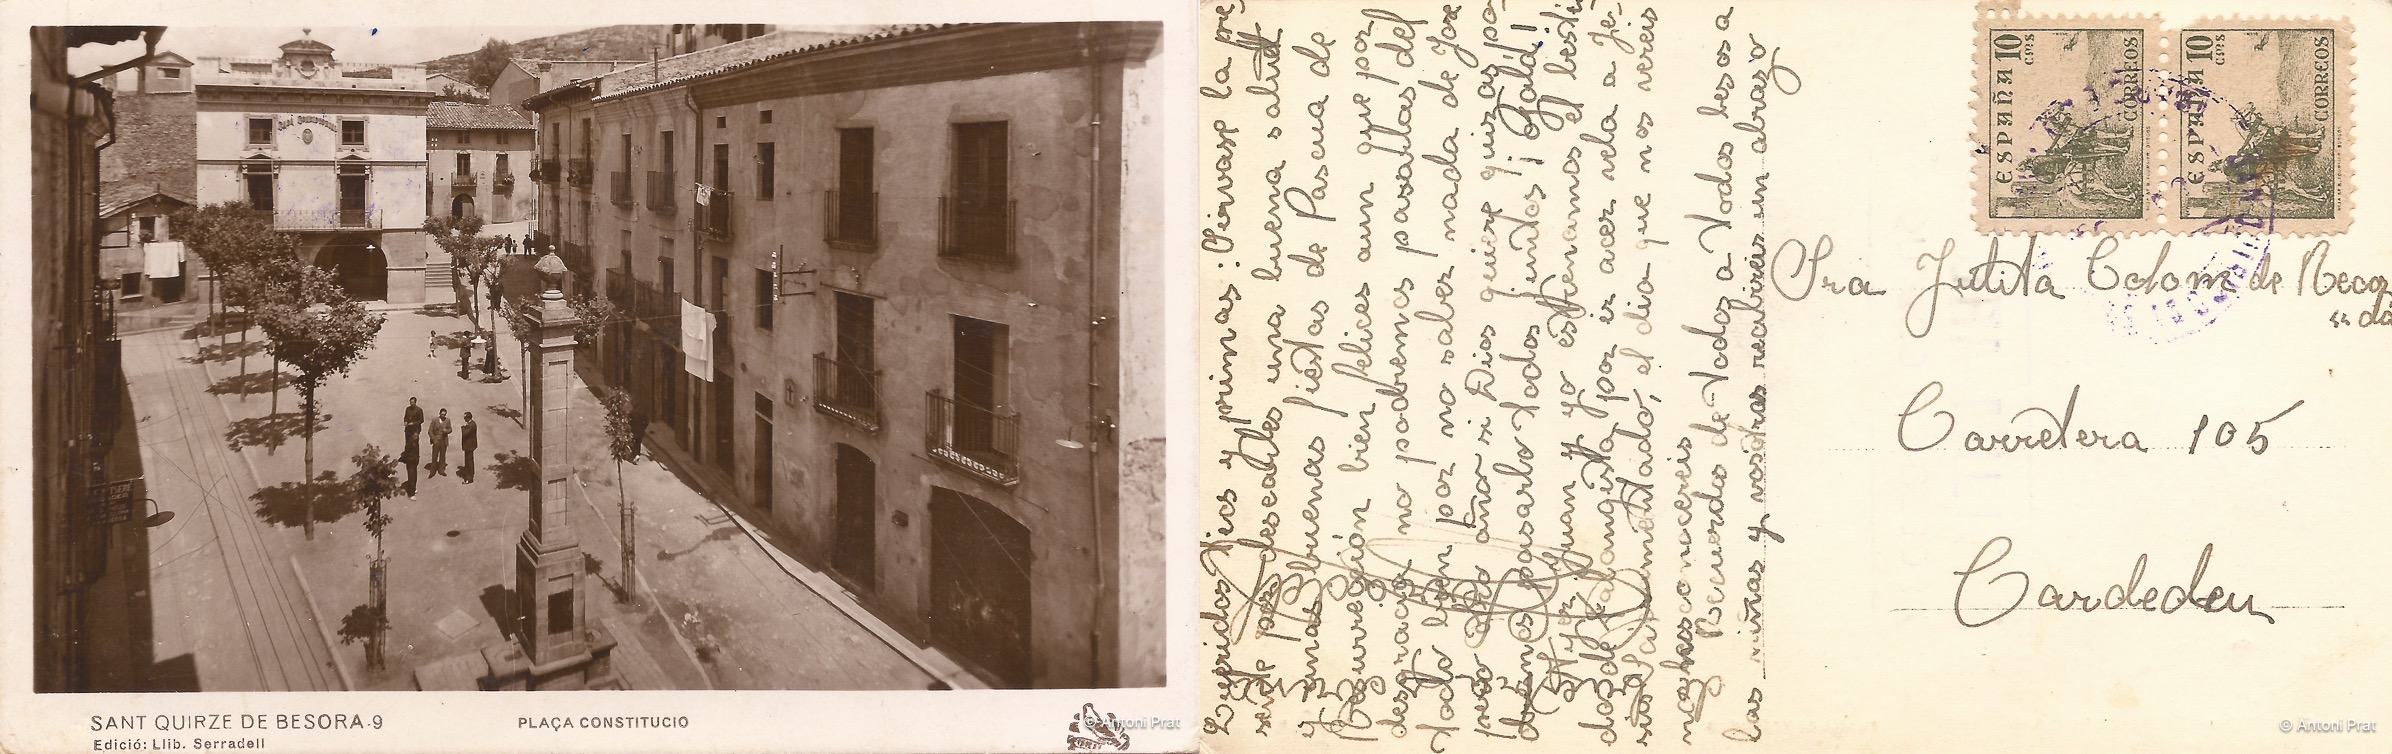 SANT QUIRZE DE BESORA-9
PLAÇA CONSTITUCIO
Edició: Llib. Serradell
© Antoni Prat
Queridos Tios y primas: Sirvase la pre
sente para desearles una buena salut
y unas buenas fiestas de Pascua de
Resurregión bien felices aun que por
desgracia no podremos pasarlas del
todo bien por no saber nada de Jose
pero otro año si Dios quiere quizas po
dremos pasarlo todos juntos ¡Ojalá!
Ayer Juan y yo estrenamos el besti
do de
por ir acer vela a Je
el dia que nos vereis
no conocereis
Recuerdos de todos a todos besos a
las niñas y vosotras recibireis un abrazo
ESPAÑA 10 cms CORREOS
ESPAÑA 10 cms CORREOS
Sra Julita Colom de Recor
" da
Carretera 105
Cardedeu
© Antoni Prat